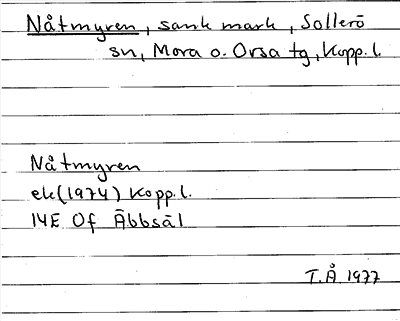 Nåtmyren, sank mark, Sollerö
sn, Mora o. Orsa tg, Kopp. l.
Nåtmyren
ek (1974) Kopp. l.
14E 0f Äbbsäl
T.Å 1977